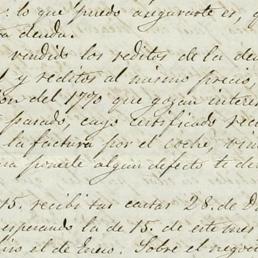 lo que puedo asegurarte es, q
ta deuda.
vendido los reditos de la deu
y reditos al mismo precio,
on del 1790 que gozan interes
parado, cuyo certificado reci
la factura por el coche, vino
ponerle algun defecto te de
15. recibi tus cartas 28. de D
esperando la de 15. de este mes
el de Enero. Sobre el negoci